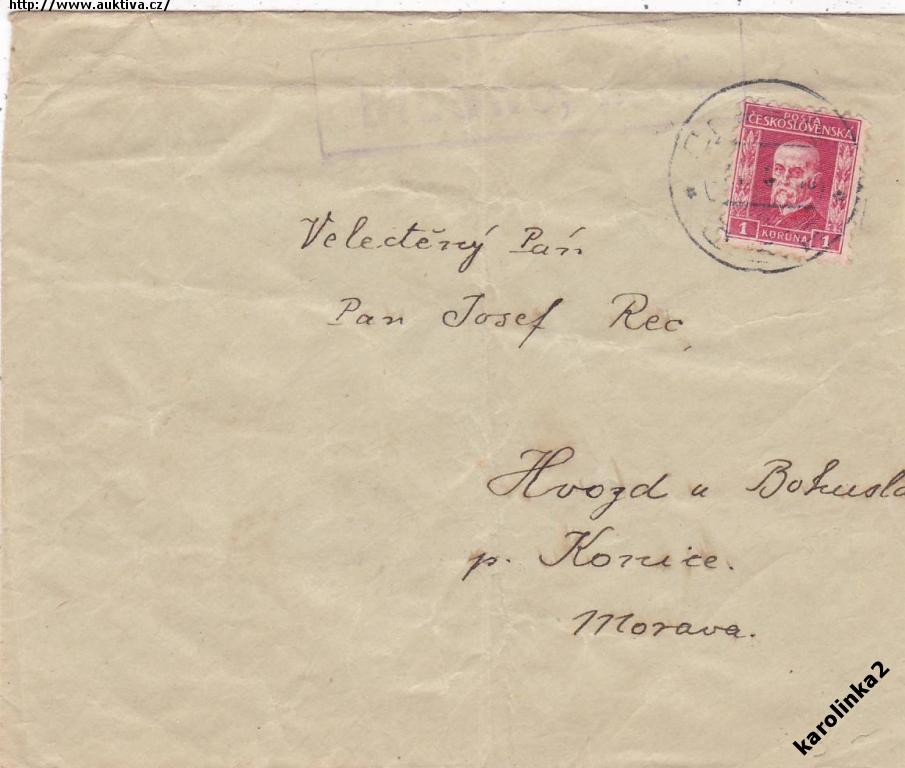 http://www.auktiva.cz/
POŠTA
ČESKOSLOVENSKÁ
1 KORUNA 1
Velectěný Pán
Pan Josef Rec,
Hvozd u Bohusla
p. Konice.
Morava.
karolinka2